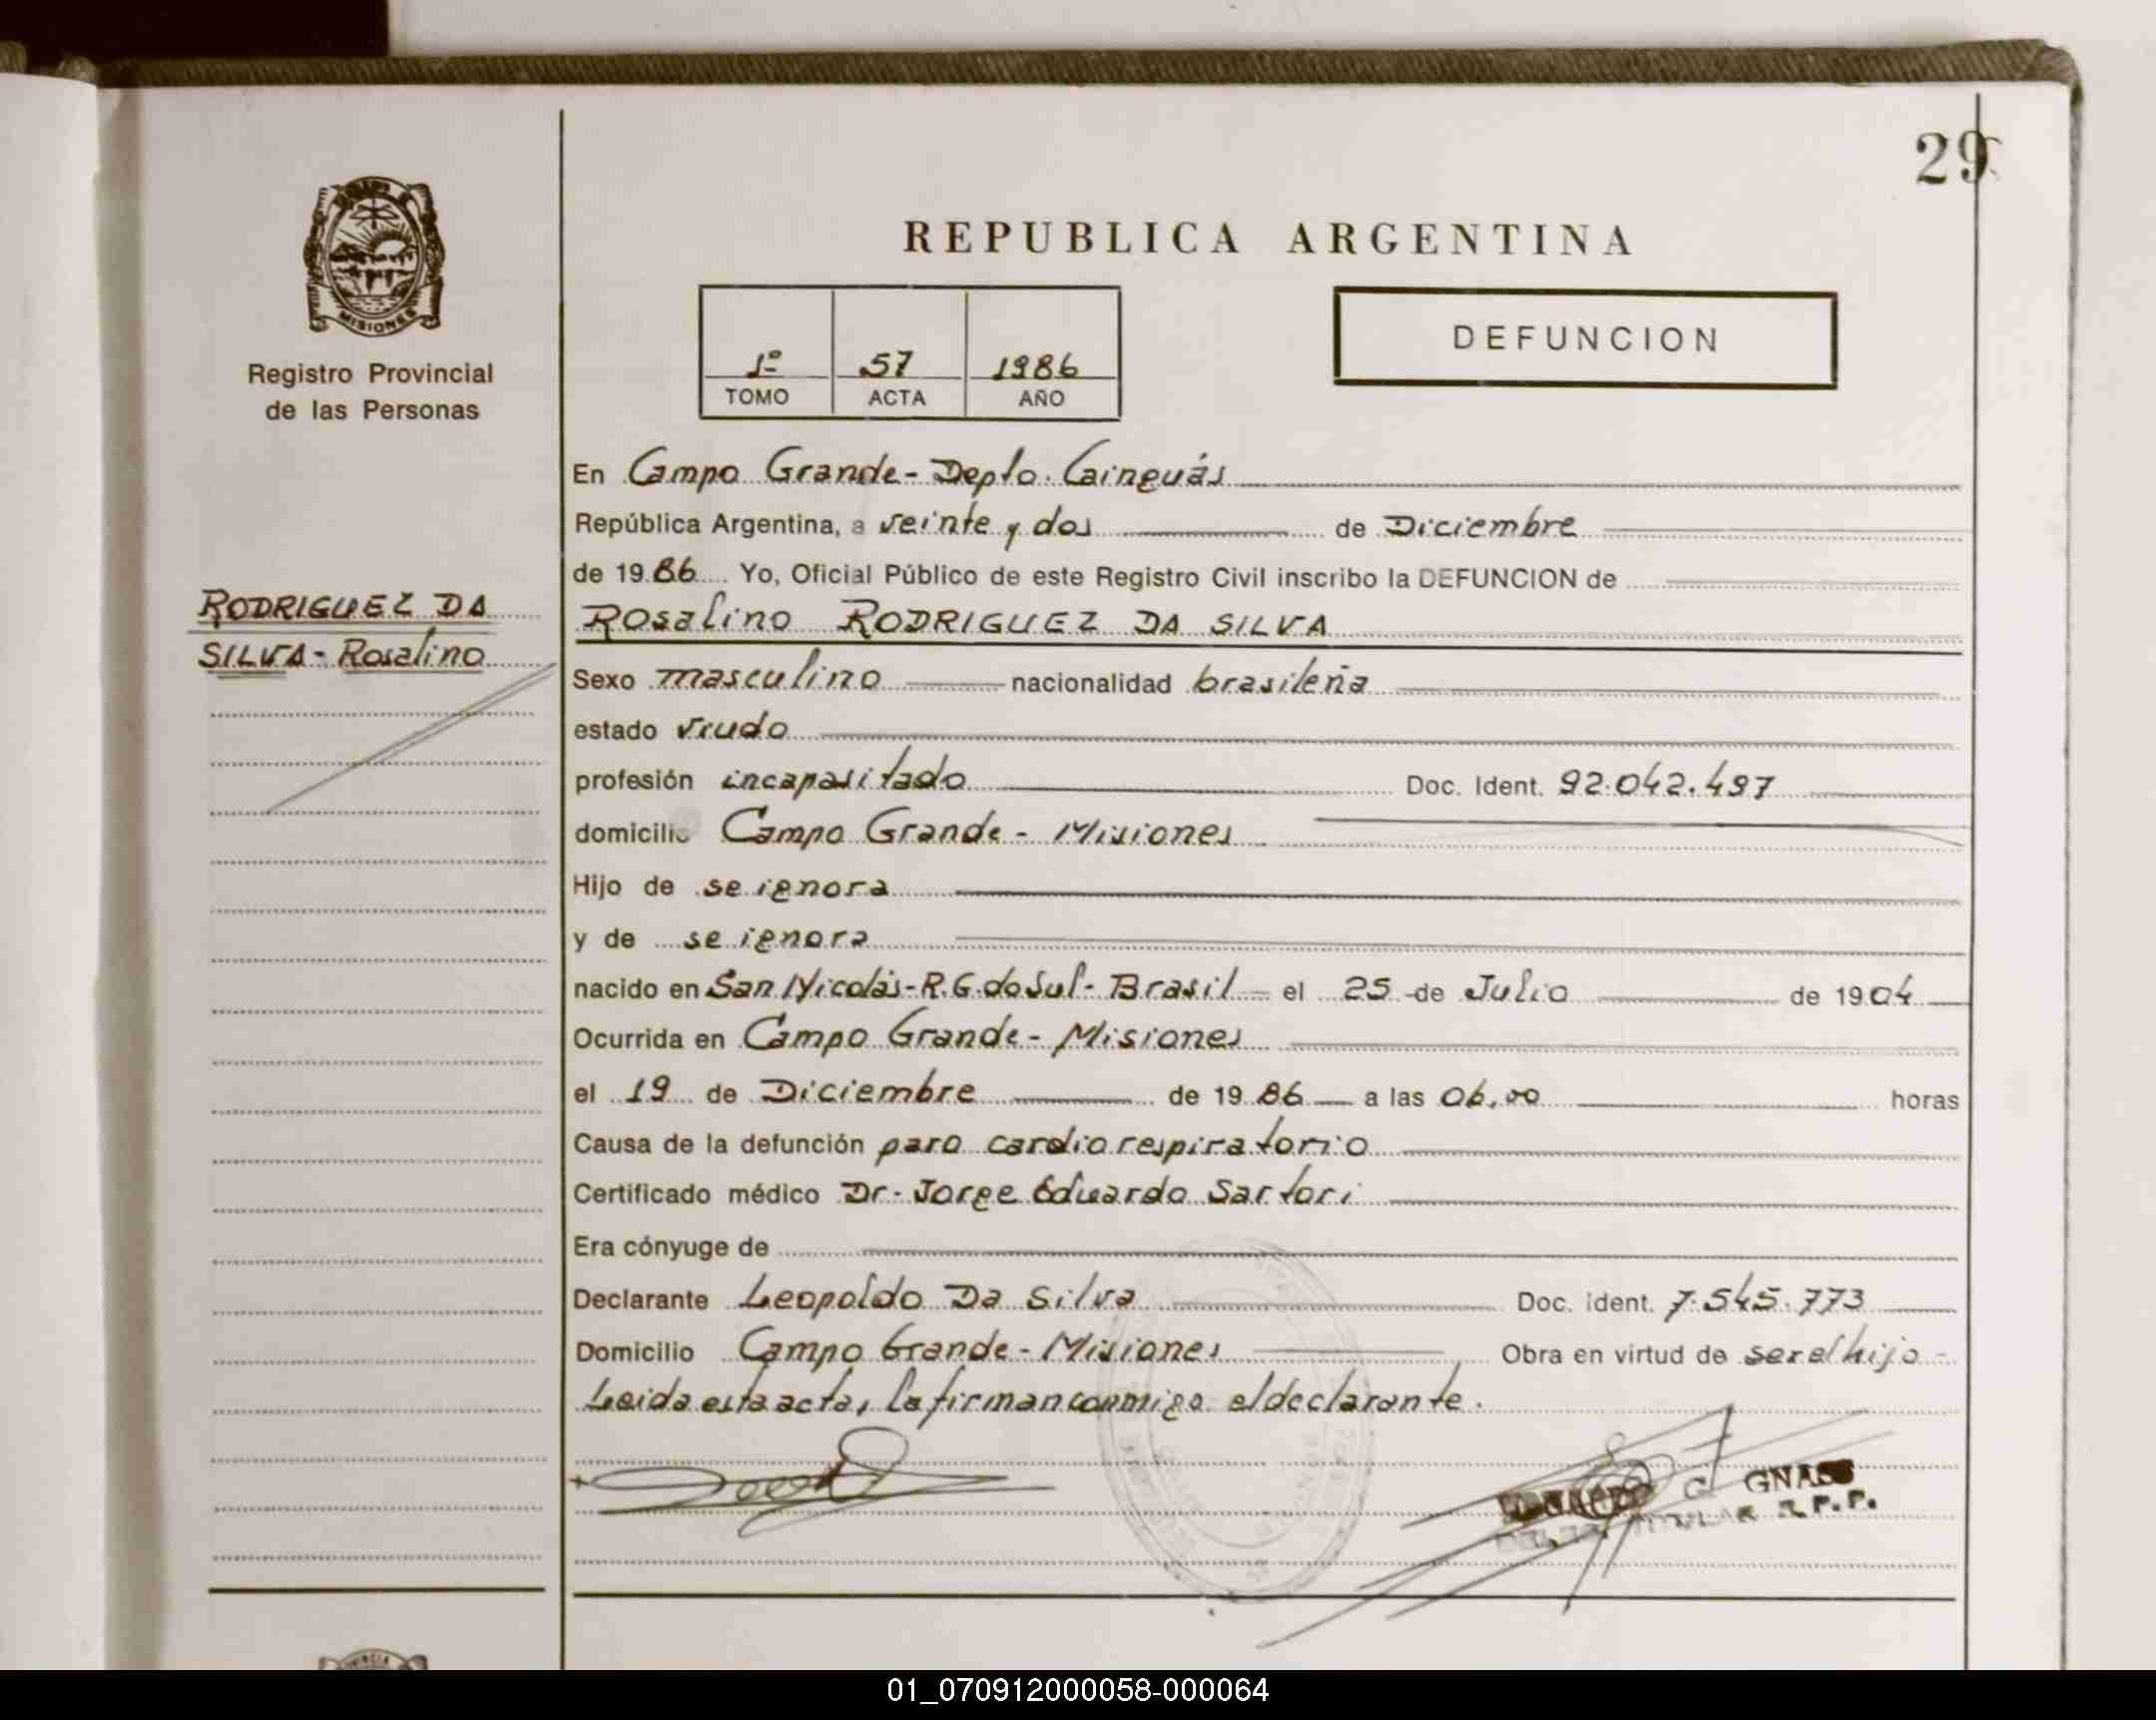 29
REPUBLICA ARGENTINA
MISIONES
Registro Provincial
de las Personas
1º 57 1986
TOMO ACTA AÑO
DEFUNCION
En Campo Grande - Depto. Cainguás
República Argentina, a veinte y dos de Diciembre
de 1986 Yo, Oficial Público de este Registro Civil inscribo la DEFUNCION de
RODRIGUEZ DA
SILVA - Rosalino
Rosalino RODRIGUEZ DA SILVA
Sexo masculino nacionalidad brasileña
estado viudo
profesión incapasitado Doc. Ident. 92.042.497
domicilio Campo Grande - Misiones
Hijo de se ignora
y de se ignora
nacido en San Nicolás - R.G. do Sul - Brasil el 25 de Julio de 1904
Ocurrida en Campo Grande - Misiones
el 19 de Diciembre de 1986 a las 06,00 horas
Causa de la defunción paro cardiorespiratorio
Certificado médico Dr. Jorge Eduardo Sartori
Era cónyuge de
Declarante Leopoldo Da Silva Doc. Ident. 7.545.773
Domicilio Campo Grande - Misiones Obra en virtud de ser el hijo -
Leida esta acta, la firman conmigo el declarante.
01_070912000058-000064